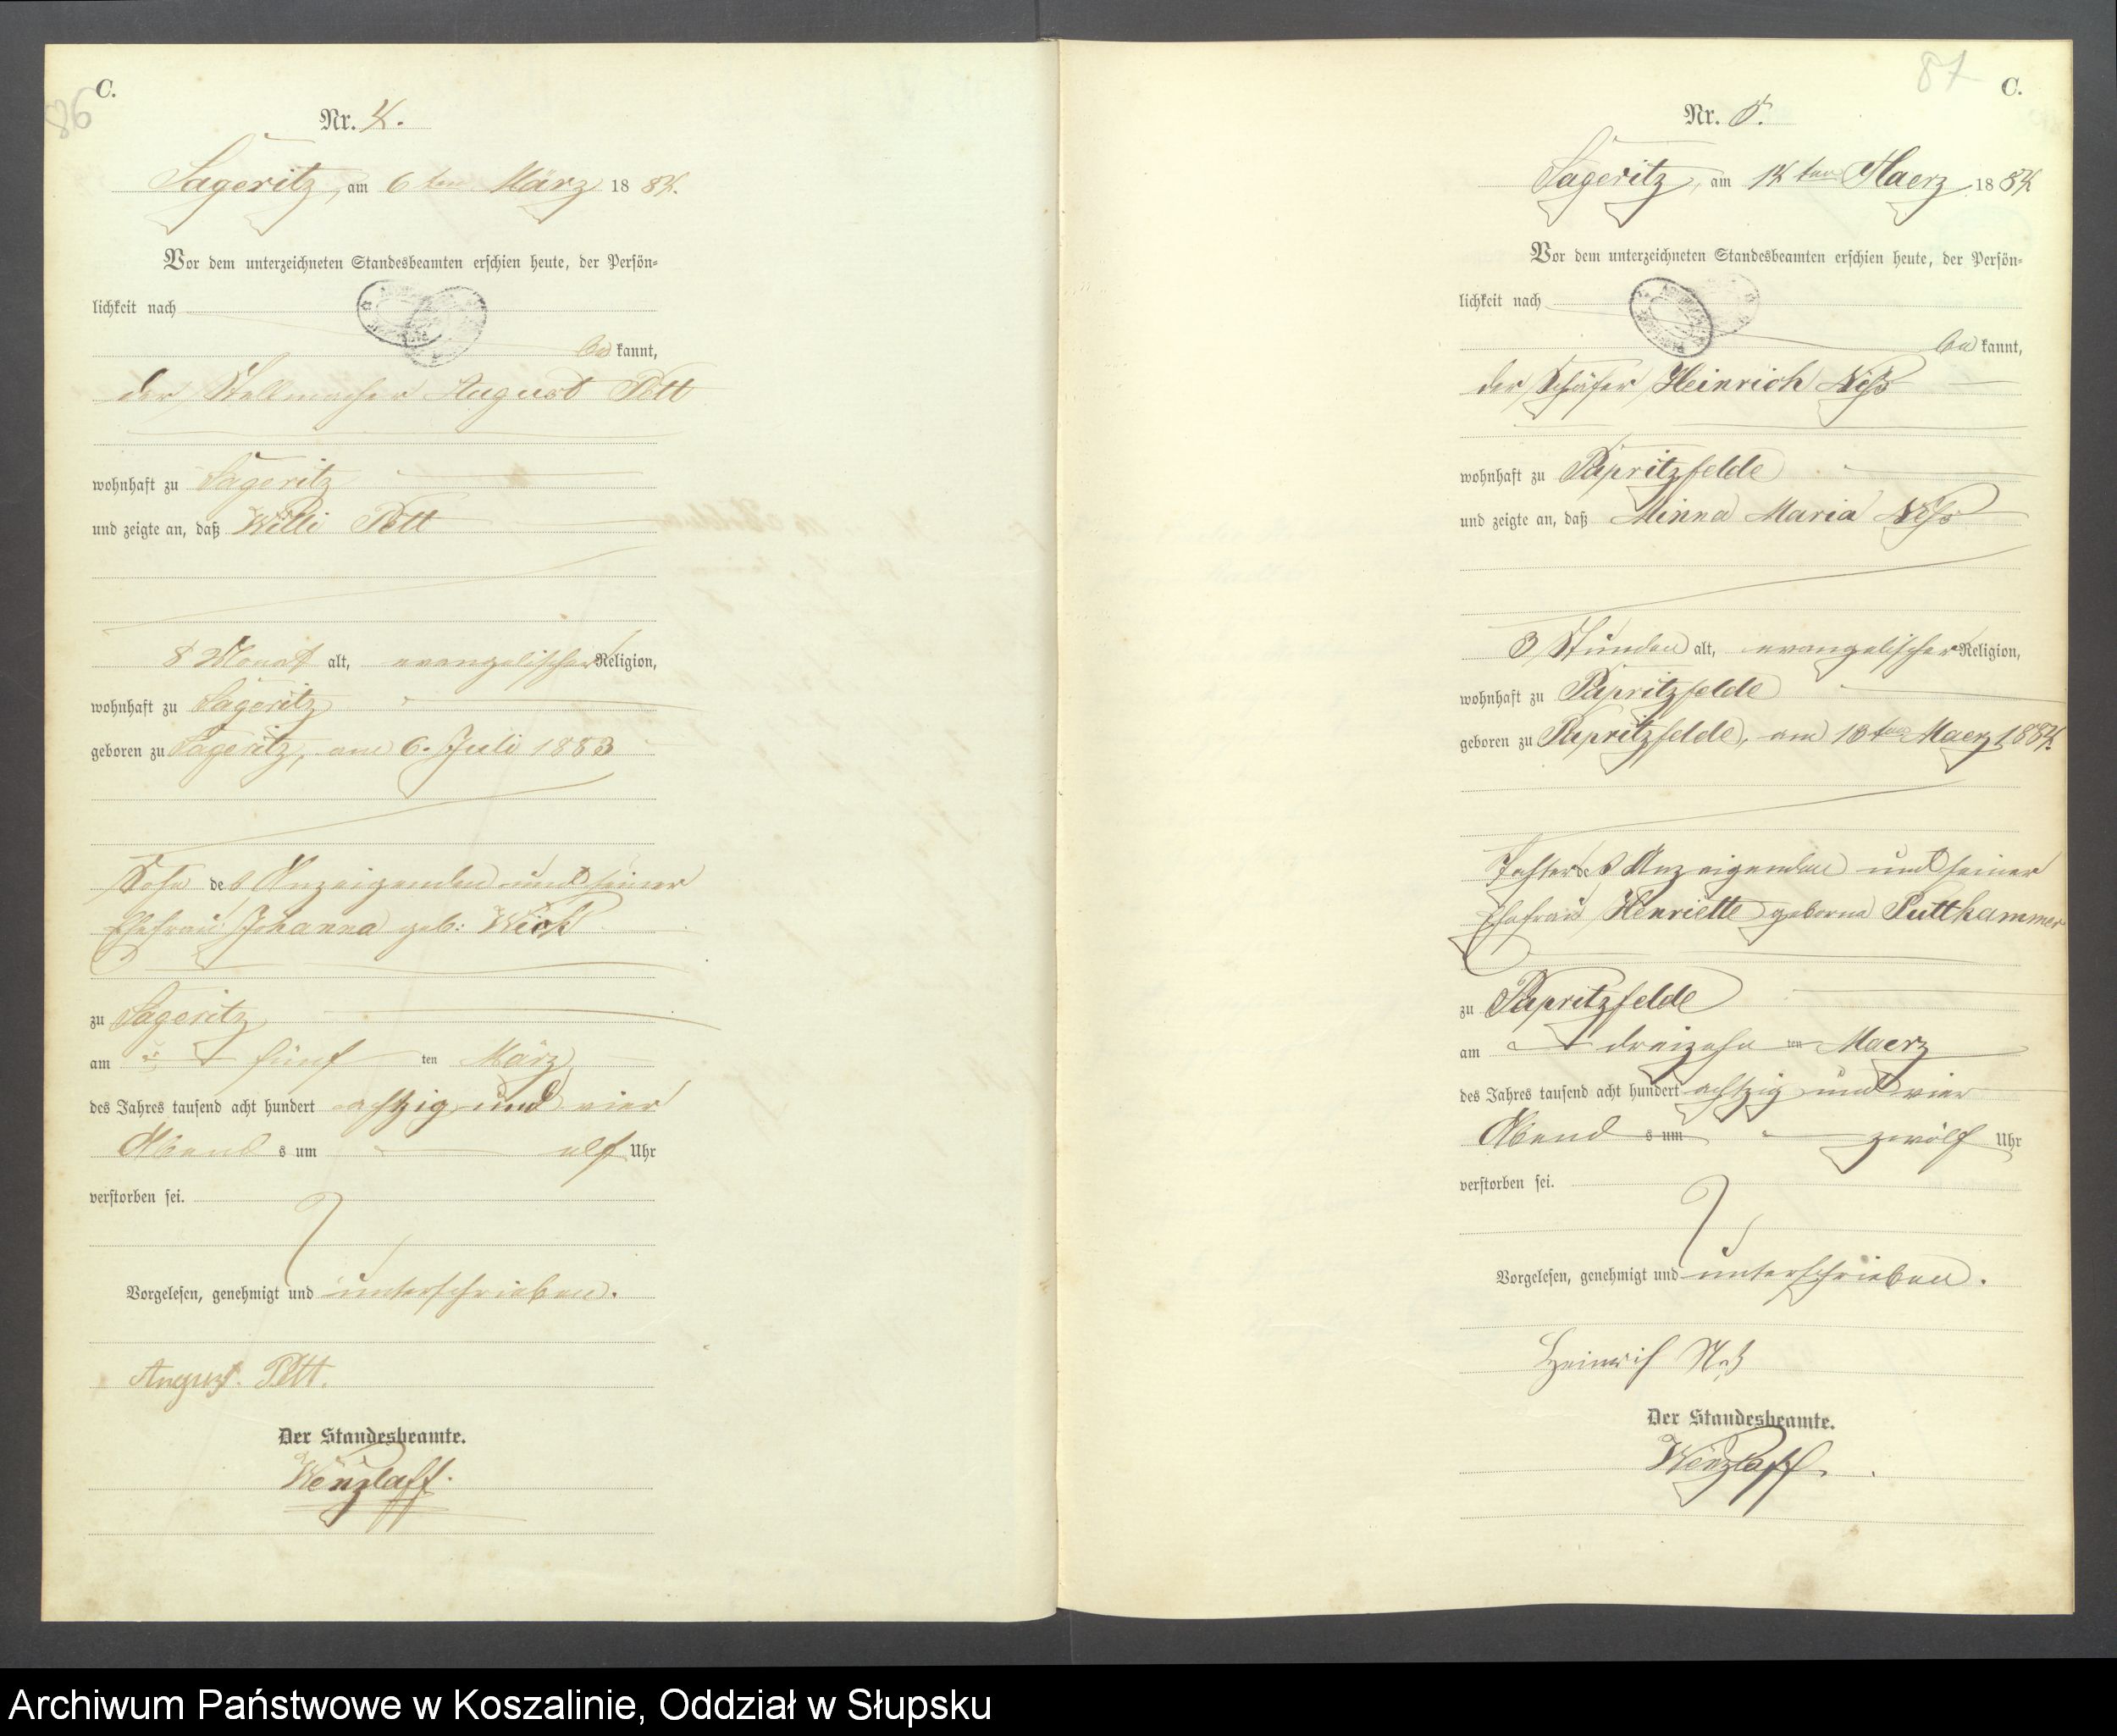 86
C.
Nr. 4.
Sageritz, am 6ten März 1884.
Vor dem unterzeichneten Standesbeamten erschien heute, der Persön-
lichkeit nach
bekannt,
der Stellmacher August Pett
wohnhaft zu Sageritz
und zeigte an, daß Willi Pett
8 Monat alt, evangelischer Religion,
wohnhaft zu Sageritz
geboren zu Sageritz, am 6. Juli 1883
Sohn des Anzeigenden und seiner
Ehefrau Johanna geb: Wick
zu Sageritz
am fünf ten März
des Jahres tausend acht hundert achtzig und vier
Abends um elf Uhr
verstorben sei.
Vorgelesen, genehmigt und unterschrieben.
August Pett.
Der Standesbeamte.
Wenzlaff.
87
C.
Nr. 5.
Sageritz, am 14ten Maerz 1884
Vor dem unterzeichneten Standesbeamten erschien heute, der Persön-
lichkeit nach
bekannt,
der Schäfer Heinrich
wohnhaft zu Papritzfelde
und zeigte an, daß Minna Maria
3 Stunden alt, evangelischer Religion,
wohnhaft zu Papritzfelde
geboren zu Papritzfelde, am 13ten Maerz 1884.
Tochter des Anzeigenden und seiner
Ehefrau Henriette geborne Puttkammer
zu Papritzfelde
am dreizehn ten Maerz
des Jahres tausend acht hundert achtzig und vier
Abends um zwölf Uhr
verstorben sei.
Vorgelesen, genehmigt und unterschrieben.
Heinrich
Der Standesbeamte.
Wenzlaff.
Archiwum Państwowe w Koszalinie, Oddział w Słupsku